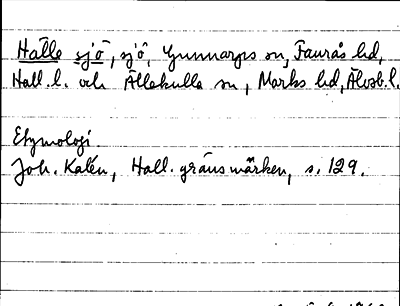 Hälle sjö, sjö, Gunnarps sn, Faurås hd,
Hall. l. och Älekulla sn, Marks hd, Älvsb. l.
Etymologi.
Joh. Kalén, Hall. gränsmärken, s. 129.